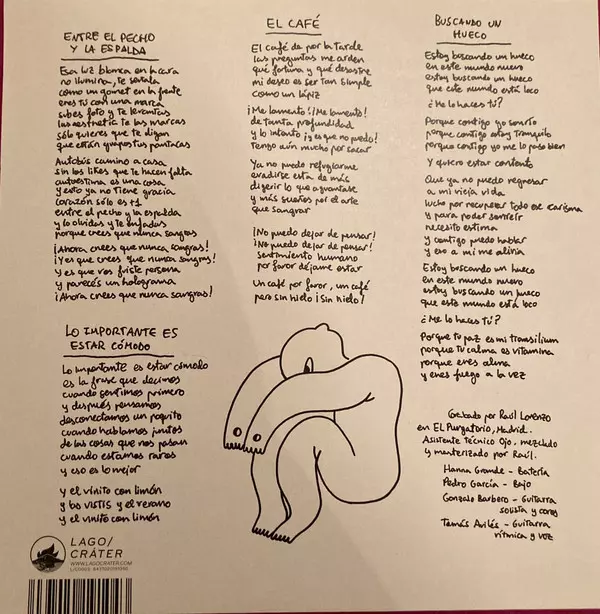 ENTRE EL PECHO
Y LA ESPALDA
Esa luz blanca en la cara
no ilumina, te señala
como un gomet en la frente
eres tú con una marca
subes foto y te levantas
las aesthetic a las marcas
sólo quieres que te digan
que están guapos tus pantacas
Autobús camino a casa
sin los likes que te hacen falta
autoestima es una cosa
y esto ya no tiene gracia
corazón sólo es +1
entre el pecho y la espalda
y lo olvidas y te enfadas
porque crees que nunca sangras
¡Ahora crees que nunca sangras!
¡Y es que crees que nunca sangras!
Y es que ves fuiste persona
y pareces un holograma
¡Ahora crees que nunca sangras!
LO IMPORTANTE ES
ESTAR CÓMODO
Lo importante es estar cómodo
es la frase que decimos
cuando sentimos primero
y después pensamos
desconectamos un poquito
cuando hablamos juntos
de las cosas que nos pasan
cuando estamos raros
y eso es lo mejor
y el vinito con limón
y los VISTIS y el verano
y el vinito con limón
LAGO/
CRÁTER
WWW.LAGOCRATER.COM
EL CAFÉ
El café de por la tarde
las preguntas me arden
qué fortuna y qué desastre
mi deseo es ser tan simple
como un lápiz
¡Me lamento! ¡Me lamento!
de tanta profundidad
y lo intento ¡y es que no puedo!
Tengo aún mucho por sacar
Ya no puedo refugiarme
evadirse está de más
digerir lo que aguantaste
y más sueños por el arte
que sangrar
¡No puedo dejar de pensar!
¡No puedo dejar de pensar!
sentimiento humano
por favor déjame estar
Un café por favor, un café
pero sin hielo ¡Sin hielo!
BUSCANDO UN
HUECO
Estoy buscando un hueco
en este mundo nuevo
estoy buscando un hueco
que este mundo está loco
¿Me lo haces tú?
Porque contigo yo sonrío
porque contigo estoy tranquilo
porque contigo yo me lo paso bien
Y quiero estar contento
Que ya no puedo regresar
a mi vieja vida
lucho por recuperar todo ese carisma
y para poder sonreír
necesito estima
y contigo puedo hablar
y eso a mí me alivia
Estoy buscando un hueco
en este mundo nuevo
estoy buscando un hueco
que este mundo está loco
¿Me lo haces tú?
Porque tu paz es mi transilium
porque tu calma es vitamina
porque eres alma
y eres fuego a la vez
Grabado por Raúl Lorenzo
en El Purgatorio, Madrid.
Asistente Técnico Ojo, mezclado
y masterizado por Raúl.
Hanna Grande - Batería
Pedro García - Bajo
Gonzalo Barbero - Guitarra
solista y coros
Tomás Avilés - Guitarra
rítmica y voz